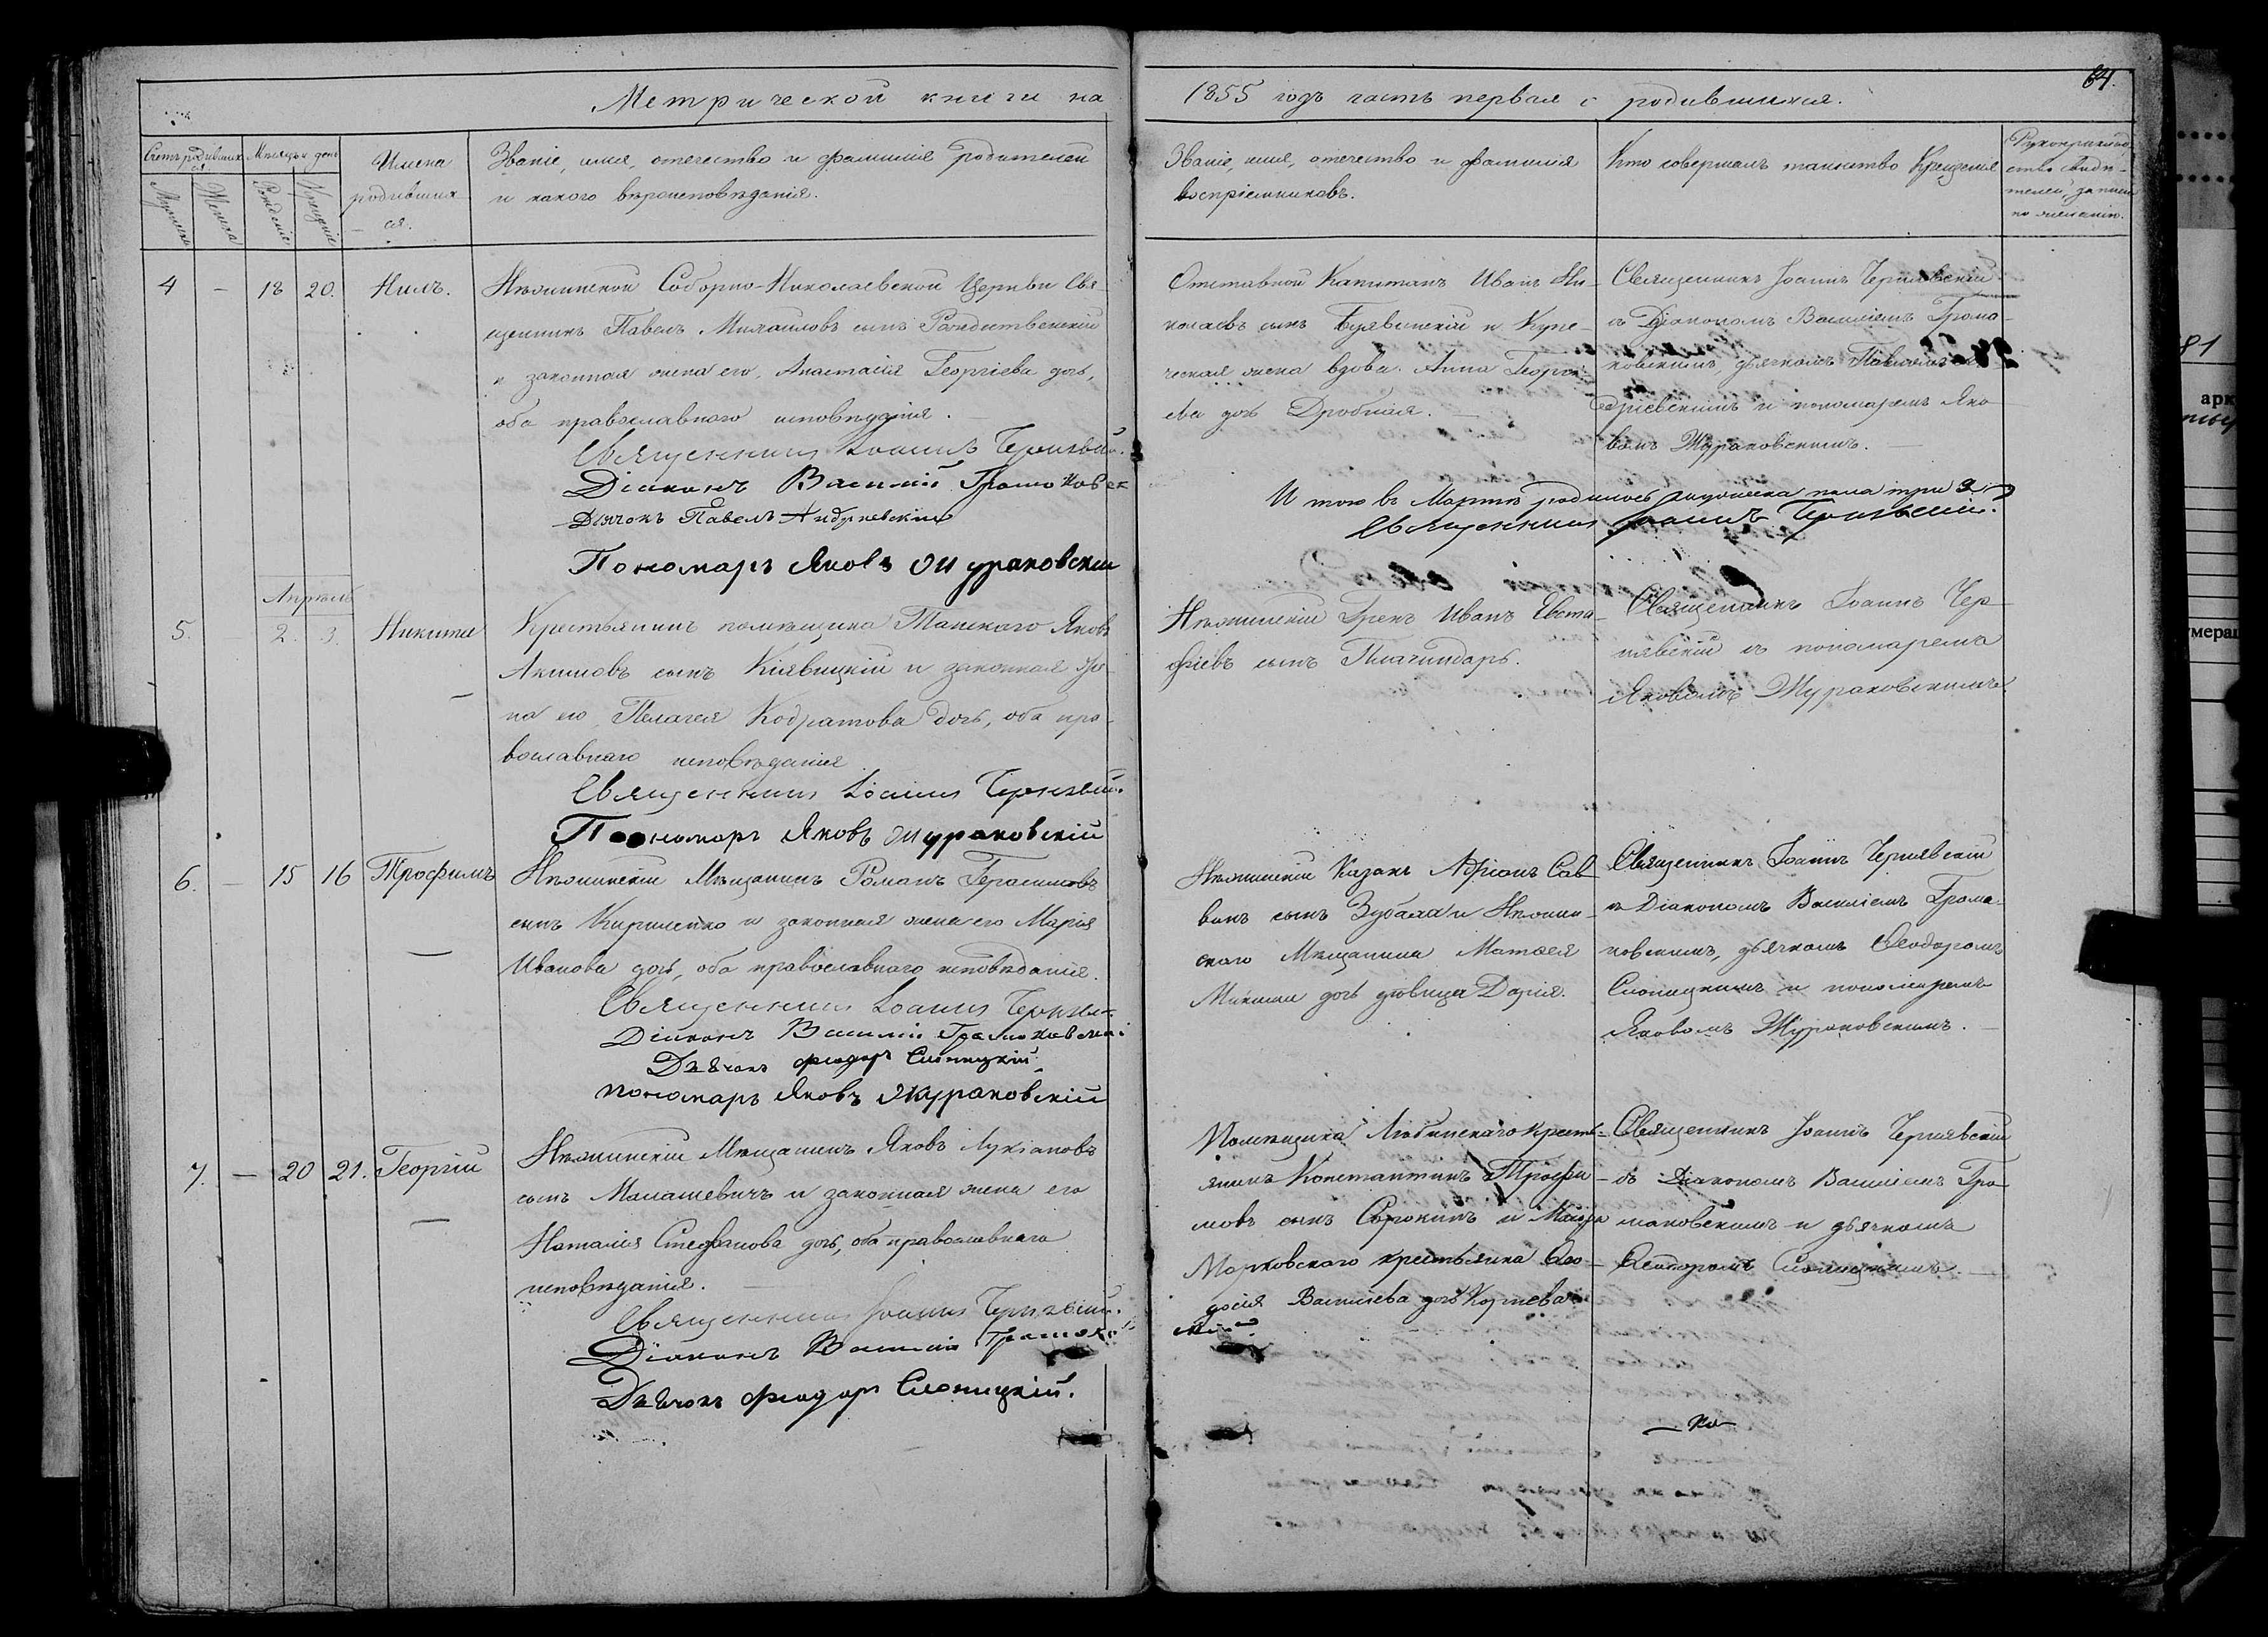 Метрической книги на
1855 годъ часть первая о родившихся.
64.
Счетъ родившихся
Мѣсяцъ и день
Имена родившихся.
Званіе, имя, отечество и фамилія родителей
и какого вѣроисповѣданія.
Званіе, имя, отечество и фамилія
воспріемниковъ.
Кто совершалъ таинство Крещенія
Рукоприкладство свидѣтелей записи по желанію.
Мужеска
Женска
Рожденіе
Крещеніе
4 – 18 20. Нилъ.
Нѣжинской Соборно-Николаевской Церкви Свя-
щенникъ Павелъ Михаиловъ сынъ Рождественскій
и законная жена его, Анастасія Георгіева дочь,
оба православнаго исповѣданія.
Священникъ Іоаннъ
Діаконъ Василій
Дьячокъ Павелъ Андріевскій
Пономарь Яковъ Жураковскій
Отставной Капитанъ Иванъ Ни-
колаевъ сынъ и Купе-
ческая жена вдова Анна Георгі-
ева дочь Дробная.
Священникъ Іоаннъ Чернявскій
съ Діакономъ Василіемъ Грома-
ковскимъ, дьячкомъ Павломъ Ан-
дріевскимъ и пономаремъ Яко-
вомъ Жураковскимъ.
И того въ Мартѣ родилось мужеска пола три 3.
Священникъ Іоаннъ Чернявскій.
Апрѣль
5. 2. 3. Никита
Крестьянинъ помѣщика Танскаго Яковъ
Акимовъ сынъ Кіявицкій и законная же-
на его Пелагея Кодратова дочь, оба пра-
вославнаго исповѣданія
Священникъ Іоаннъ
Пономарь Яковъ Жураковскій
Нѣжинскій Грекъ Иванъ Евста-
фіевъ сынъ
Священникъ Іоаннъ Чер-
нявскій съ пономаремъ
Яковомъ Жураковскимъ.
6. – 15 16 Трофимъ
Нѣжинскій Мѣщанинъ Романъ Герасимовъ
сынъ Кириленко и законная жена его Марія
Иванова дочь, оба православнаго исповѣданія.
Священникъ Іоаннъ
Діаконъ Василій Громаковскій
Дьячокъ Федоръ Слоницкій
Пономарь Яковъ Жураковскій
Нѣжинскій Казакъ Адріанъ Сав-
винъ сынъ Зубаха и Нѣжин-
скаго Мѣщанина Матвея
дочь дѣвица Дарія.
Священникъ Іоаннъ Чернявскій
съ Діакономъ Василіемъ Грома-
ковскимъ, дьячкомъ Ѳеодоромъ
Слоницкимъ и пономаремъ
Яковомъ Жураковскимъ.
7. – 20 21. Георгій
Нѣжинскій Мѣщанинъ Яковъ Лукіановъ
сынъ Малашевичъ и законная жена его
Наталія Стефанова дочь, оба православнаго
исповѣданія.
Священникъ Іоаннъ
Діаконъ Василій
Дьячокъ Федоръ Слоницкій.
Помѣщика кресть-
янинъ Константинъ Трофи-
мовъ сынъ Сорокинъ и
Марковскаго крестьянка Ѳео-
досія Василіева дочь
Священникъ Іоаннъ Чернявскій
съ Діакономъ Василіемъ Гро-
маковскимъ и дьячкомъ
Ѳеодоромъ Слоницкимъ.